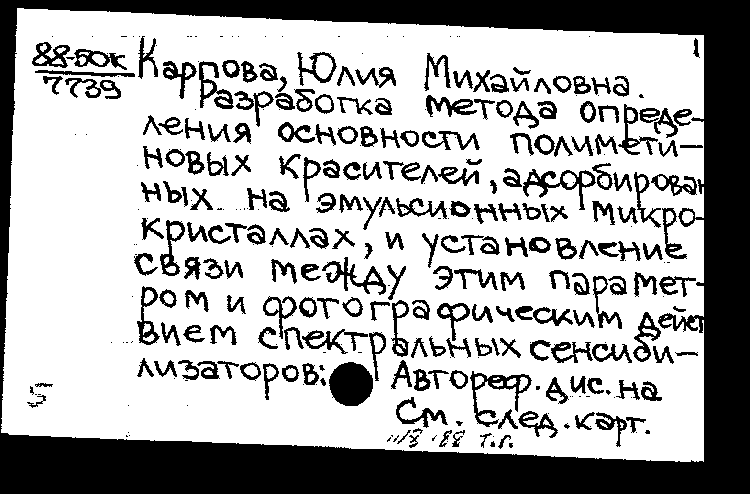 88-50к
7739
1
Карпова, Юлия Михайловна.
Разработка метода опреде-
ления основности полимети-
новых красителей, адсорбирован
ных на эмульсионных микро-
кристаллах, и установление
связи между этим парамет-
ром и фотографическим дейст
вием спектральных сенсиби-
лизаторов: Автореф. дис. на
См. след. карт.
5